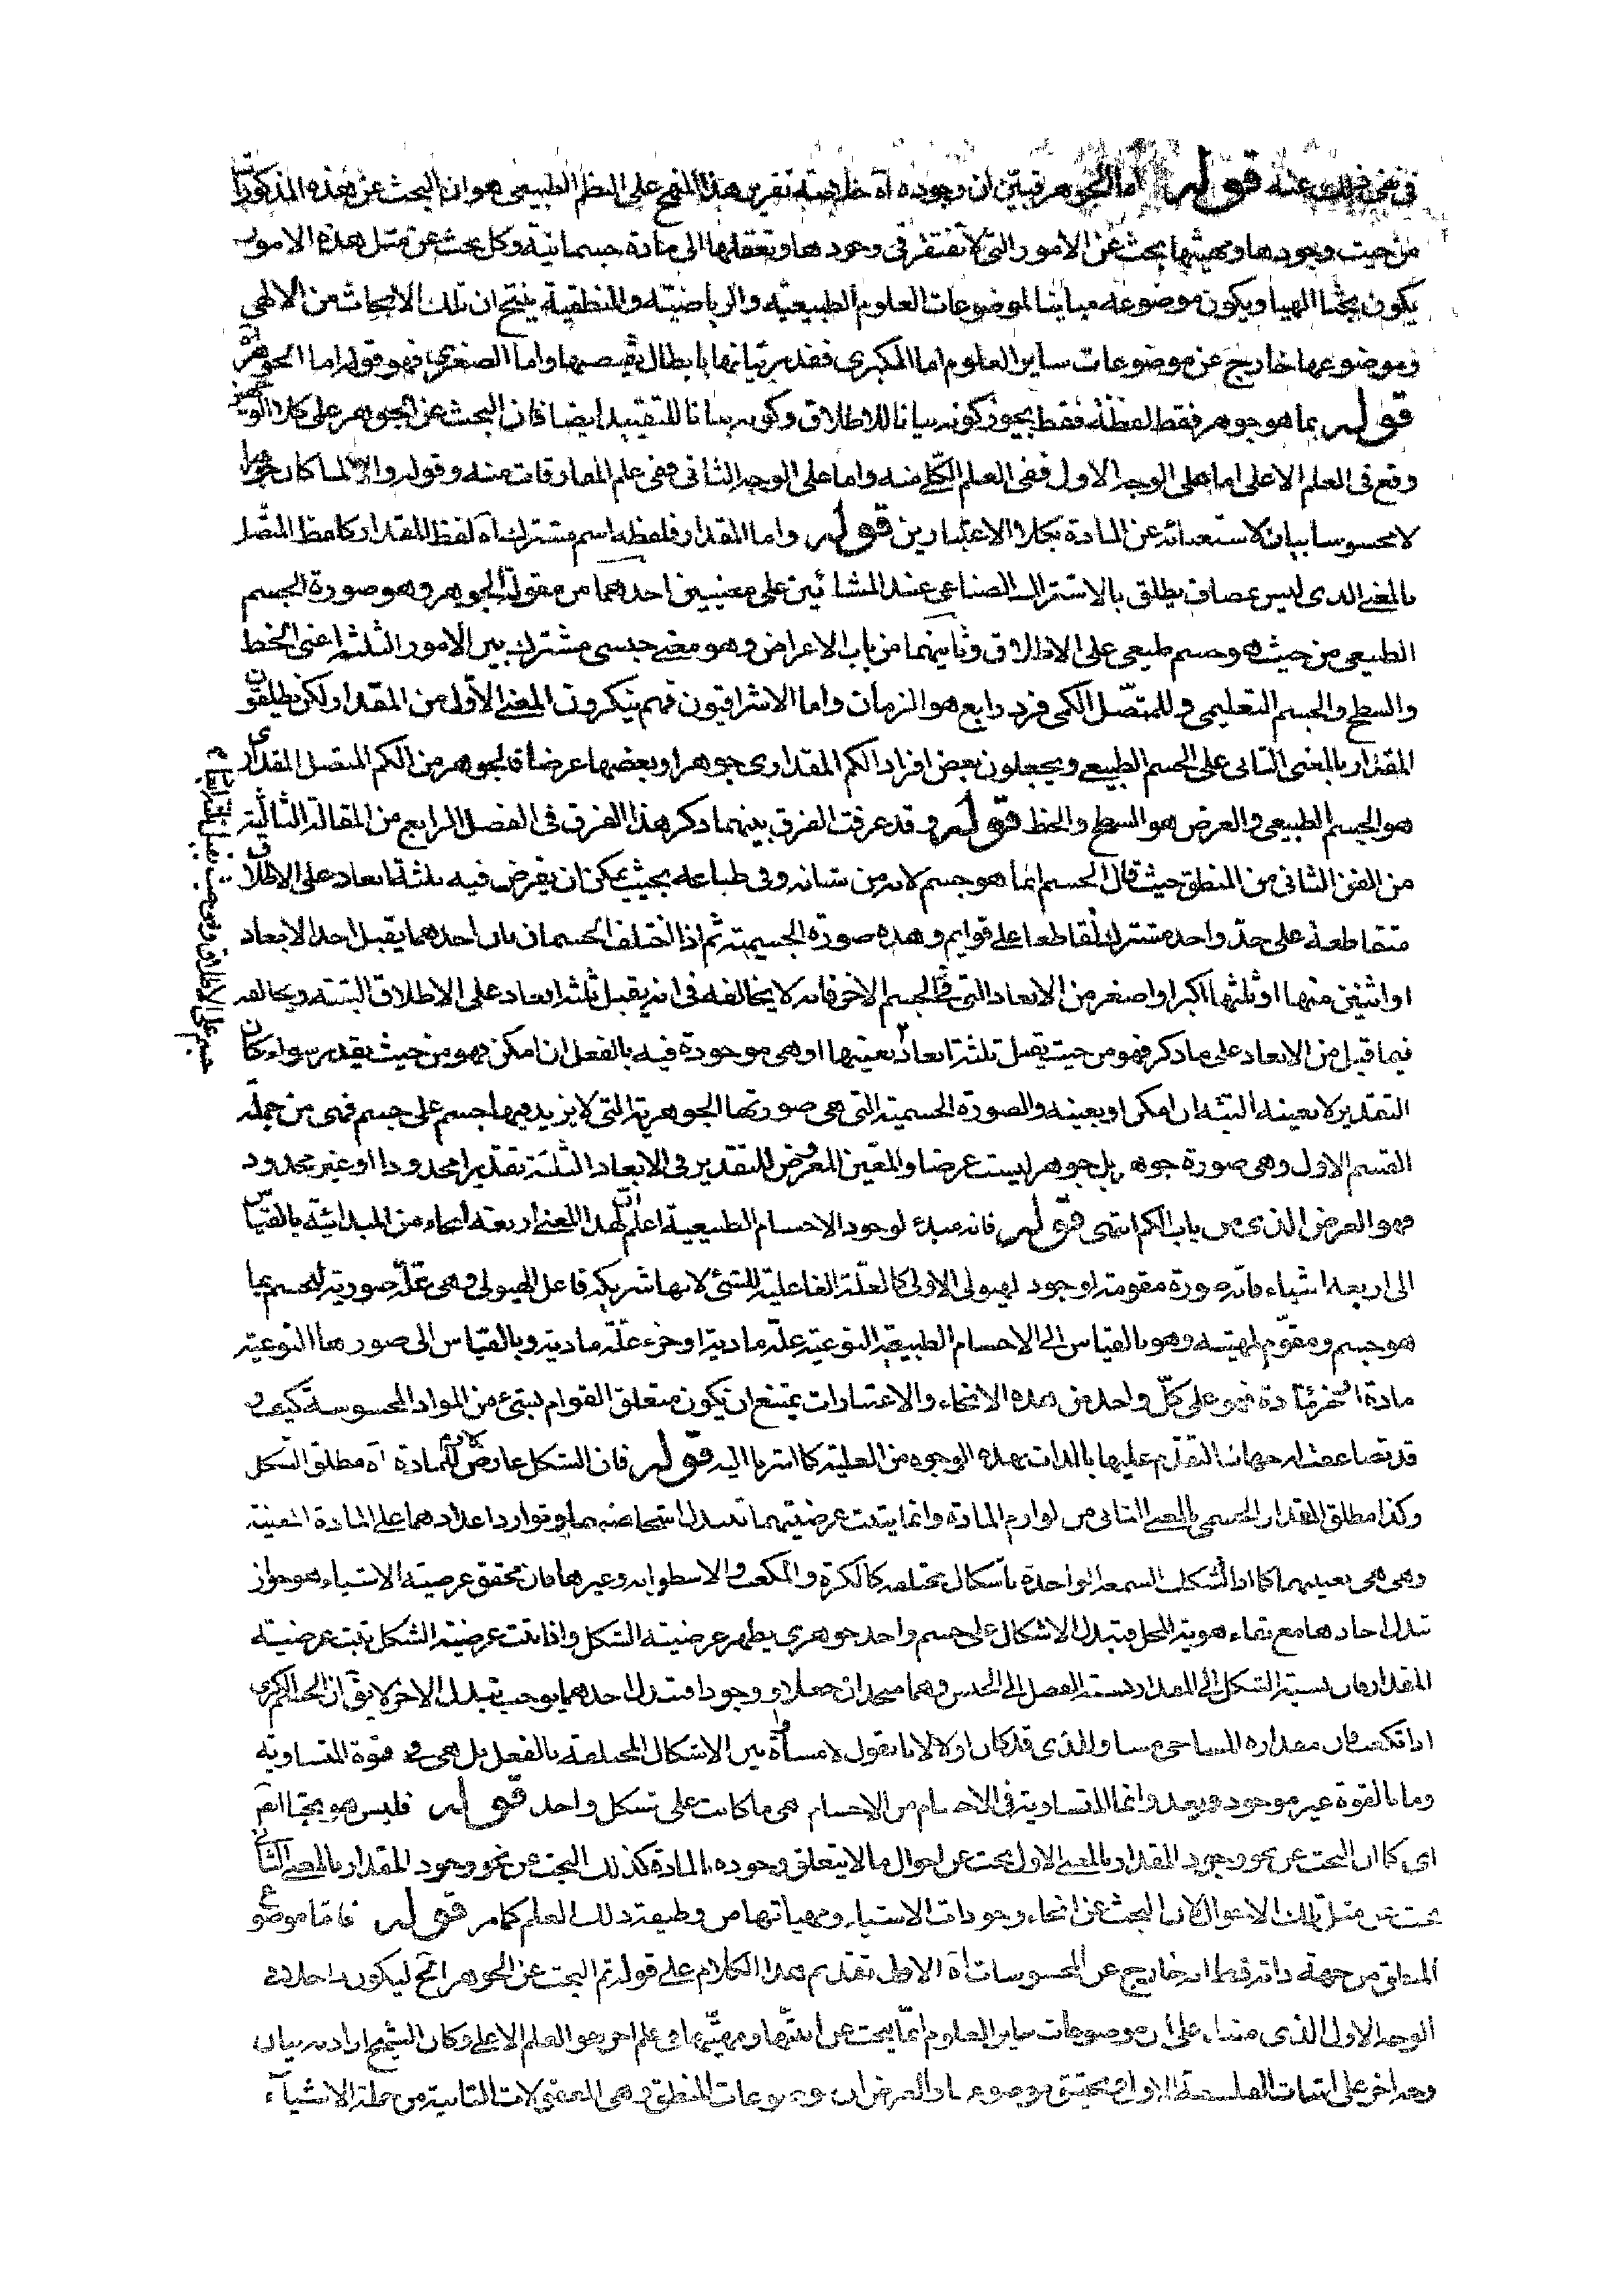 قوله اما الجوهر فبيّن ان وجوده آه خلاصة تقرير هذا المنهج على النظم الطبيعى هو ان البحث عن هذه المذكورات
من حيث وجودها ومهيتها بحث عن الامور التى لا تفتقر فى وجودها وتعقلها الى مادة جسمانية وكل بحث عن مثل هذه الامور
يكون بحثا الهيا ويكون موضوعه مباينا لموضوعات العلوم الطبيعيه والرياضيّه والمنطقية ينتج ان تلك الابحاث من الالهى
وموضوعها خارج عن موضوعات ساير العلوم اما الكبرى فقد مر بيانها بابطال نقيضها واما الصغرى فهو قوله اما الجوهر
قوله بما هو جوهر فقط لفظة فقط يجوز كونه بيانا للاطلاق وكونه بيانا للتقييد ايضا فان البحث عن الجوهر على كلا الوجهين
وقع فى العلم الاعلى اما على الوجه الاول ففى العلم الكلى منه واما على الوجه الثانى ففى علم المفارقات منه وقوله والا لما كان جوهرا
لا محسوسا بيان لاستغنائه عن المادة بكلا الاعتبارين قوله واما المقدار فلفظه اسم مشترك آه لفظ المقدار كلفظ المتصل
بالمعنى الذى ليس بمضاف يطلق بالاشتراك الصناعى عند المشائين على معنيين احدهما من مقولة الجوهر وهو صورة الجسم
الطبيعى من حيث هو جسم طبيعى على الاطلاق وثانيهما من باب الاعراض وهو معنى جنسى مشترك بين الامور الثلثة اعنى الخط
والسطح والجسم التعليمى وللمتّصل الكمى فرد رابع هو الزمان واما الاشراقيون فهم ينكرون المعنى الاول من المقدار ولكن يطلقون
المقدار بالمعنى الثانى على الجسم الطبيعى ويجعلون بعض افراد الكم المقدارى جوهرا وبعضها عرضا فالجوهر من الكم المتصل المقدارى
هو الجسم الطبيعى والعرض هو السطح والخط قوله وقد عرفت الفرق بينهما ذكر هذا الفرق فى الفصل الرابع من المقالة الثالثة
من الفن الثانى من المنطق حيث قال الجسم انما هو جسم لانه من شانه وفى طباعه بحيث يمكن ان يفرض فيه ثلثة ابعاد على الاطلاق
متقاطعة على حدّ واحد مشترك تقاطعا على قوايم وهذه صورة الجسمية ثم اذا اختلف الجسمان بان احدهما يقبل احد الابعاد
او اثنين منها او ثلثها اكبر او اصغر من الابعاد التى فى الجسم الاخر فانه لا يخالفه فى انه يقبل ثلثة ابعاد على الاطلاق البتة ويخالفه
فيما قبل من الابعاد على ما ذكر فهو من حيث يقبل ثلثة ابعاد بعينها او هى موجودة فيه بالفعل ان امكن فهو من حيث يقدر سواء كان
التقدير لا بعينه البتة ان امكن او بعينه والصورة الجسمية التى هى صورتها الجوهرية التى لا يزيد فيها جسم على جسم فهى من جملة
القسم الاول وهى صورة جوهر بل جوهر ليست عرضا والمعين المعروض للتقدير فى الابعاد الثلثة تقديرا محدودا او غير محدود
فهو العرض الذى من باب الكم انتهى قوله فانه مبدء لوجود الاجسام الطبيعية اعلم ان لهذا المعنى اربعة انحاء من المبدائية بالقياس
الى اربعة اشياء فانه صورة مقومة لوجود الهيولى الاولى كالعلة الفاعلية للشئ لانها شريكة فاعل الهيولى وهى علّة صورية للجسم بما
هو جسم ومقوّم لمهيته وهو بالقياس الى الاجسام الطبيعية النوعية علّة مادية او جزء علّة مادية وبالقياس الى صورها النوعية
مادة او جزء مادة فهو على كلّ واحد من هذه الانحاء والاعتبارات يمتنع ان يكون متعلق القوام بشئ من المواد المحسوسة كيف و
قد تضاعفت له جهات التقدم عليها بالذات بهذه الوجوه من العلية كما اشرنا اليه قوله فان الشكل عارض لازم للمادة آه مطلق الشكل
وكذا مطلق المقدار الجسمى بالمعنى الثانى من لوازم المادة وانما يثبت عرضيتهما بتبدل اشخاصهما وتوارد اعدادهما على المادة المعينة
وهى هى بعينها كما اذا تشكلت الشمعة الواحدة باشكال مختلفة كالكرة والمكعب والاسطوانة وغيرها فان محقق عرضية الاشياء هو جواز
تبدل احادها مع بقاء هوية المحل فبتبدل الاشكال على جسم واحد جوهرى يظهر عرضية الشكل واذا ثبت عرضية الشكل يثبت عرضية
المقدار فان نسبة الشكل الى المقدار نسبة الفصل الى الجنس وهما متحدان جعلا ووجودا فتبدل احدهما يوجب تبدل الاخر لا يق ان الجسم الكرى
اذا تكعب فان مقداره المساحى مساو للذى قد كان اولا لانا نقول لا مساواة بين الاشكال المختلفة بالفعل بل هى فى قوة المتساوية
وما بالقوة غير موجود وبعد وانما المتساوية فى الاجسام من الاجسام هى ما كانت على شكل واحد قوله فليس هو بحثا ايضا
اى كما ان البحث عن نحو وجود المقدار بالمعنى الاول بحث عن احوال ما لا يتعلق وجوده بالمادة كذلك البحث عن نحو وجود المقدار بالمعنى الثانى
بحث عن مثل تلك الاحوال لان البحث عن انحاء وجودات الاشياء ومهياتها من وظيفة ذلك العلم كما مر قوله فاما موضوع
المنطق من جهة ذاته فظ انه خارج عن المحسوسات آه الاولى تقديم هذا الكلام على قوله ثم البحث عن الجوهر اتج ليكون داخلا فى
الوجه الاول الذى مبناه على ان موضوعات ساير العلوم انما يبحث عن انيّتها ومهيّتها فى علم اخر هو العلم الاعلى وكان الشيخ اراد به بيان
وجه اخر على اثبات الفلسفة الاولى بتحقيق موضوعها وموضوعات المنطق هى المعقولات الثانية من جملة الاشياء
جسم على الاطلاق وفى حيث يقبل ثلثة ابعاد